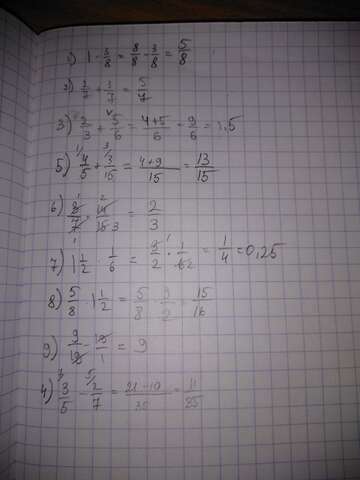 1) 1 - 3/8 = 8/8 - 3/8 = 5/8
2) 2/7 + 3/7 = 5/7
3) 2/3 + 5/6 = 4+5/6 = 9/6 = 1,5
5) 4/5 + 3/15 = 4+9/15 = 13/15
6) 8/7 · 14/15 3 = 2/3
7) 1 1/2 · 1/6 = 3/2 · 1/62 = 1/4 = 0,25
8) 5/8 · 1 1/2 = 5/8 · 3/2 = 15/16
9) 9/10 - 10/1 = 9
4) 3/5 - 2/7 = 21-10/35 = 11/25